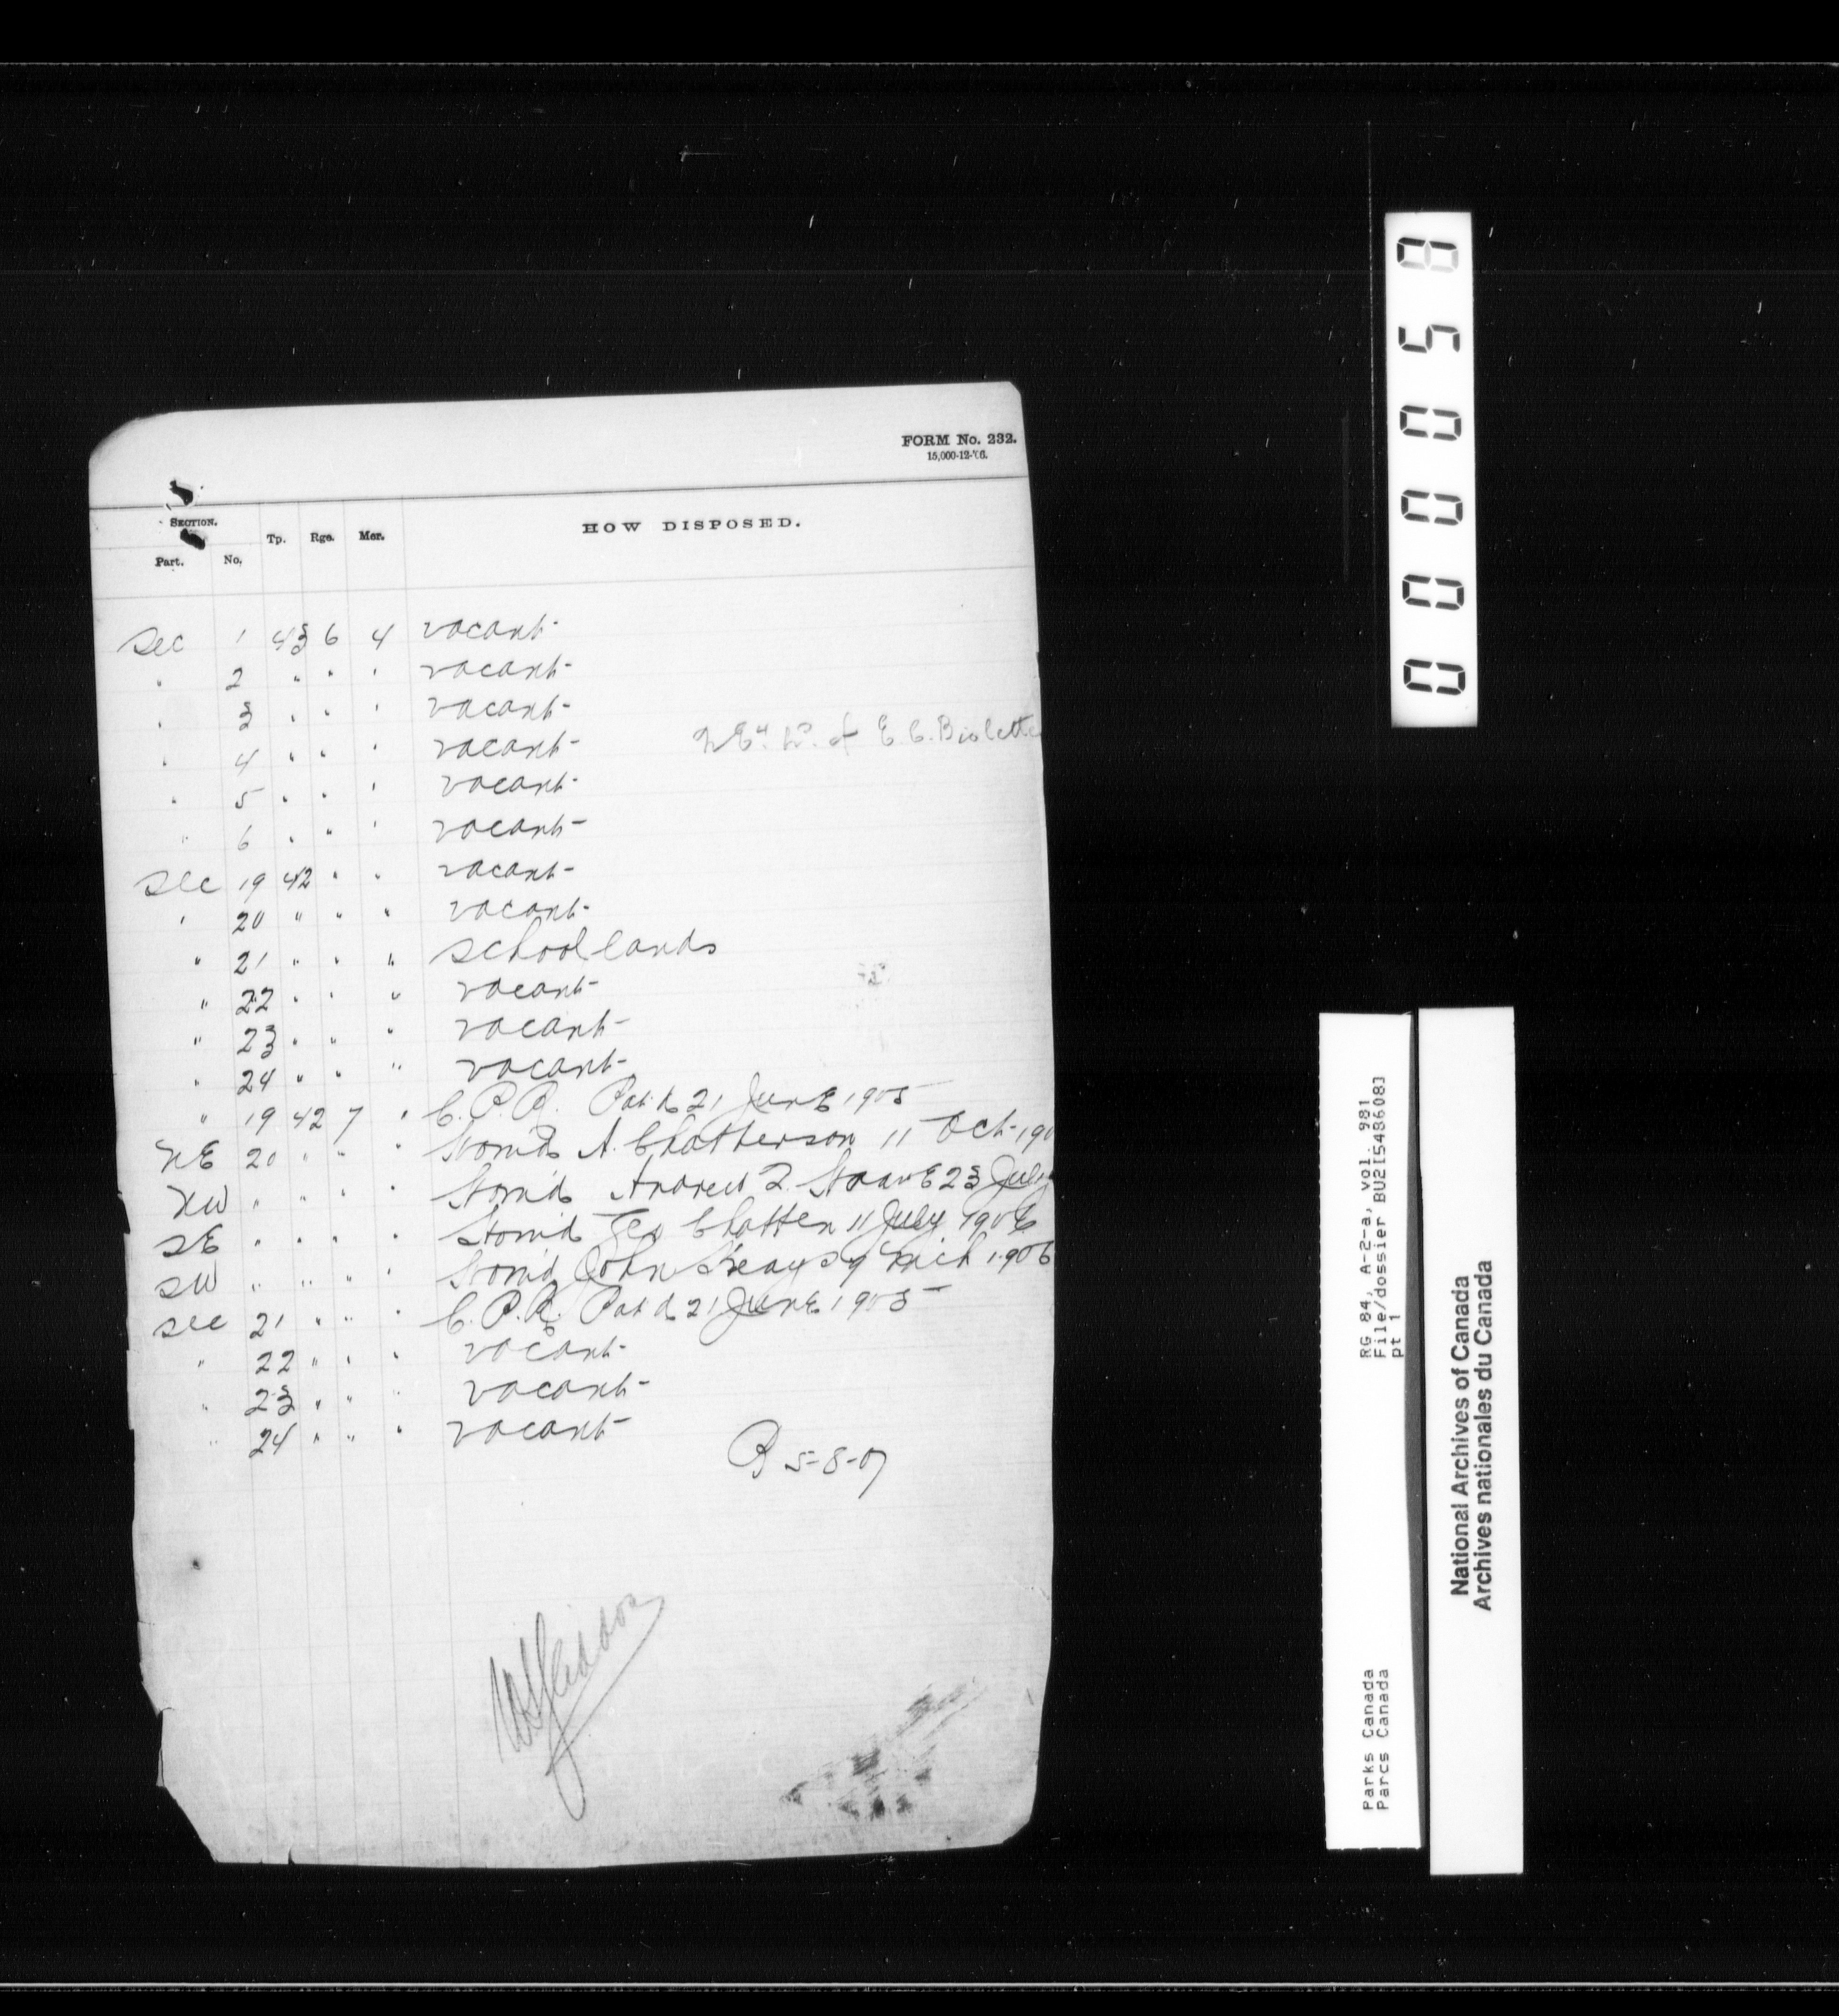 FORM No. 232.
15,000-12-'06.
SECTION. Tp. Rge. Mer. HOW DISPOSED.
Part. No.
Sec 1 43 6 4 vacant
" 2 " " " vacant
" 3 " " " vacant
" 4 " " " vacant E. C. Violette
" 5 " " " vacant
" 6 " " " vacant
Sec 19 42 " " vacant
" 20 " " " vacant
" 21 " " " School lands
" 22 " " " vacant
" 23 " " " vacant
" 24 " " " vacant
" 19 42 7 " C.P.R. Pat'd 21 June 1905
NE 20 " " " A. Chatterson 11 Oct 190
NW " " " " Andrew 23 July
SE " " " " Geo Chatten 11 July 1906
SW " " " " John 9 Mch 1906
Sec 21 " " " C.P.R. Pat'd 21 June 1905
" 22 " " " vacant
" 23 " " " vacant
" 24 " " " vacant
5-8-07
00058
RG 84, A-2-a, vol. 981
File/dossier BU215486083
pt 1
Parks Canada
Parcs Canada
National Archives of Canada
Archives nationales du Canada